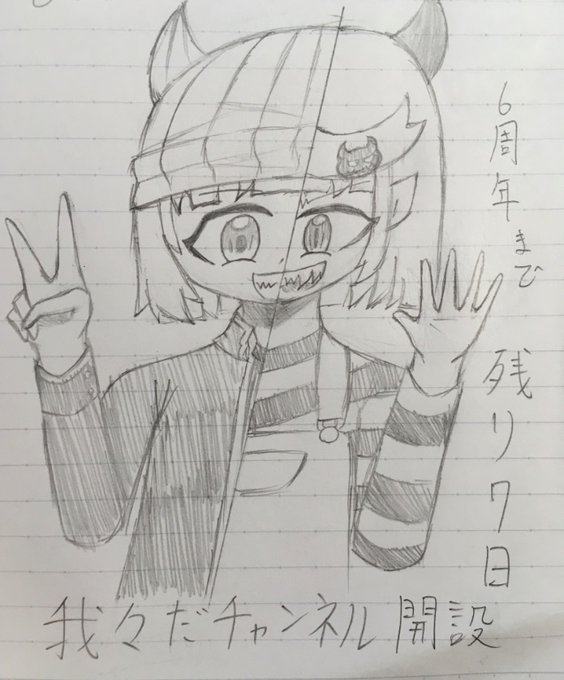 6周年まで 残り7日
我々だチャンネル開設